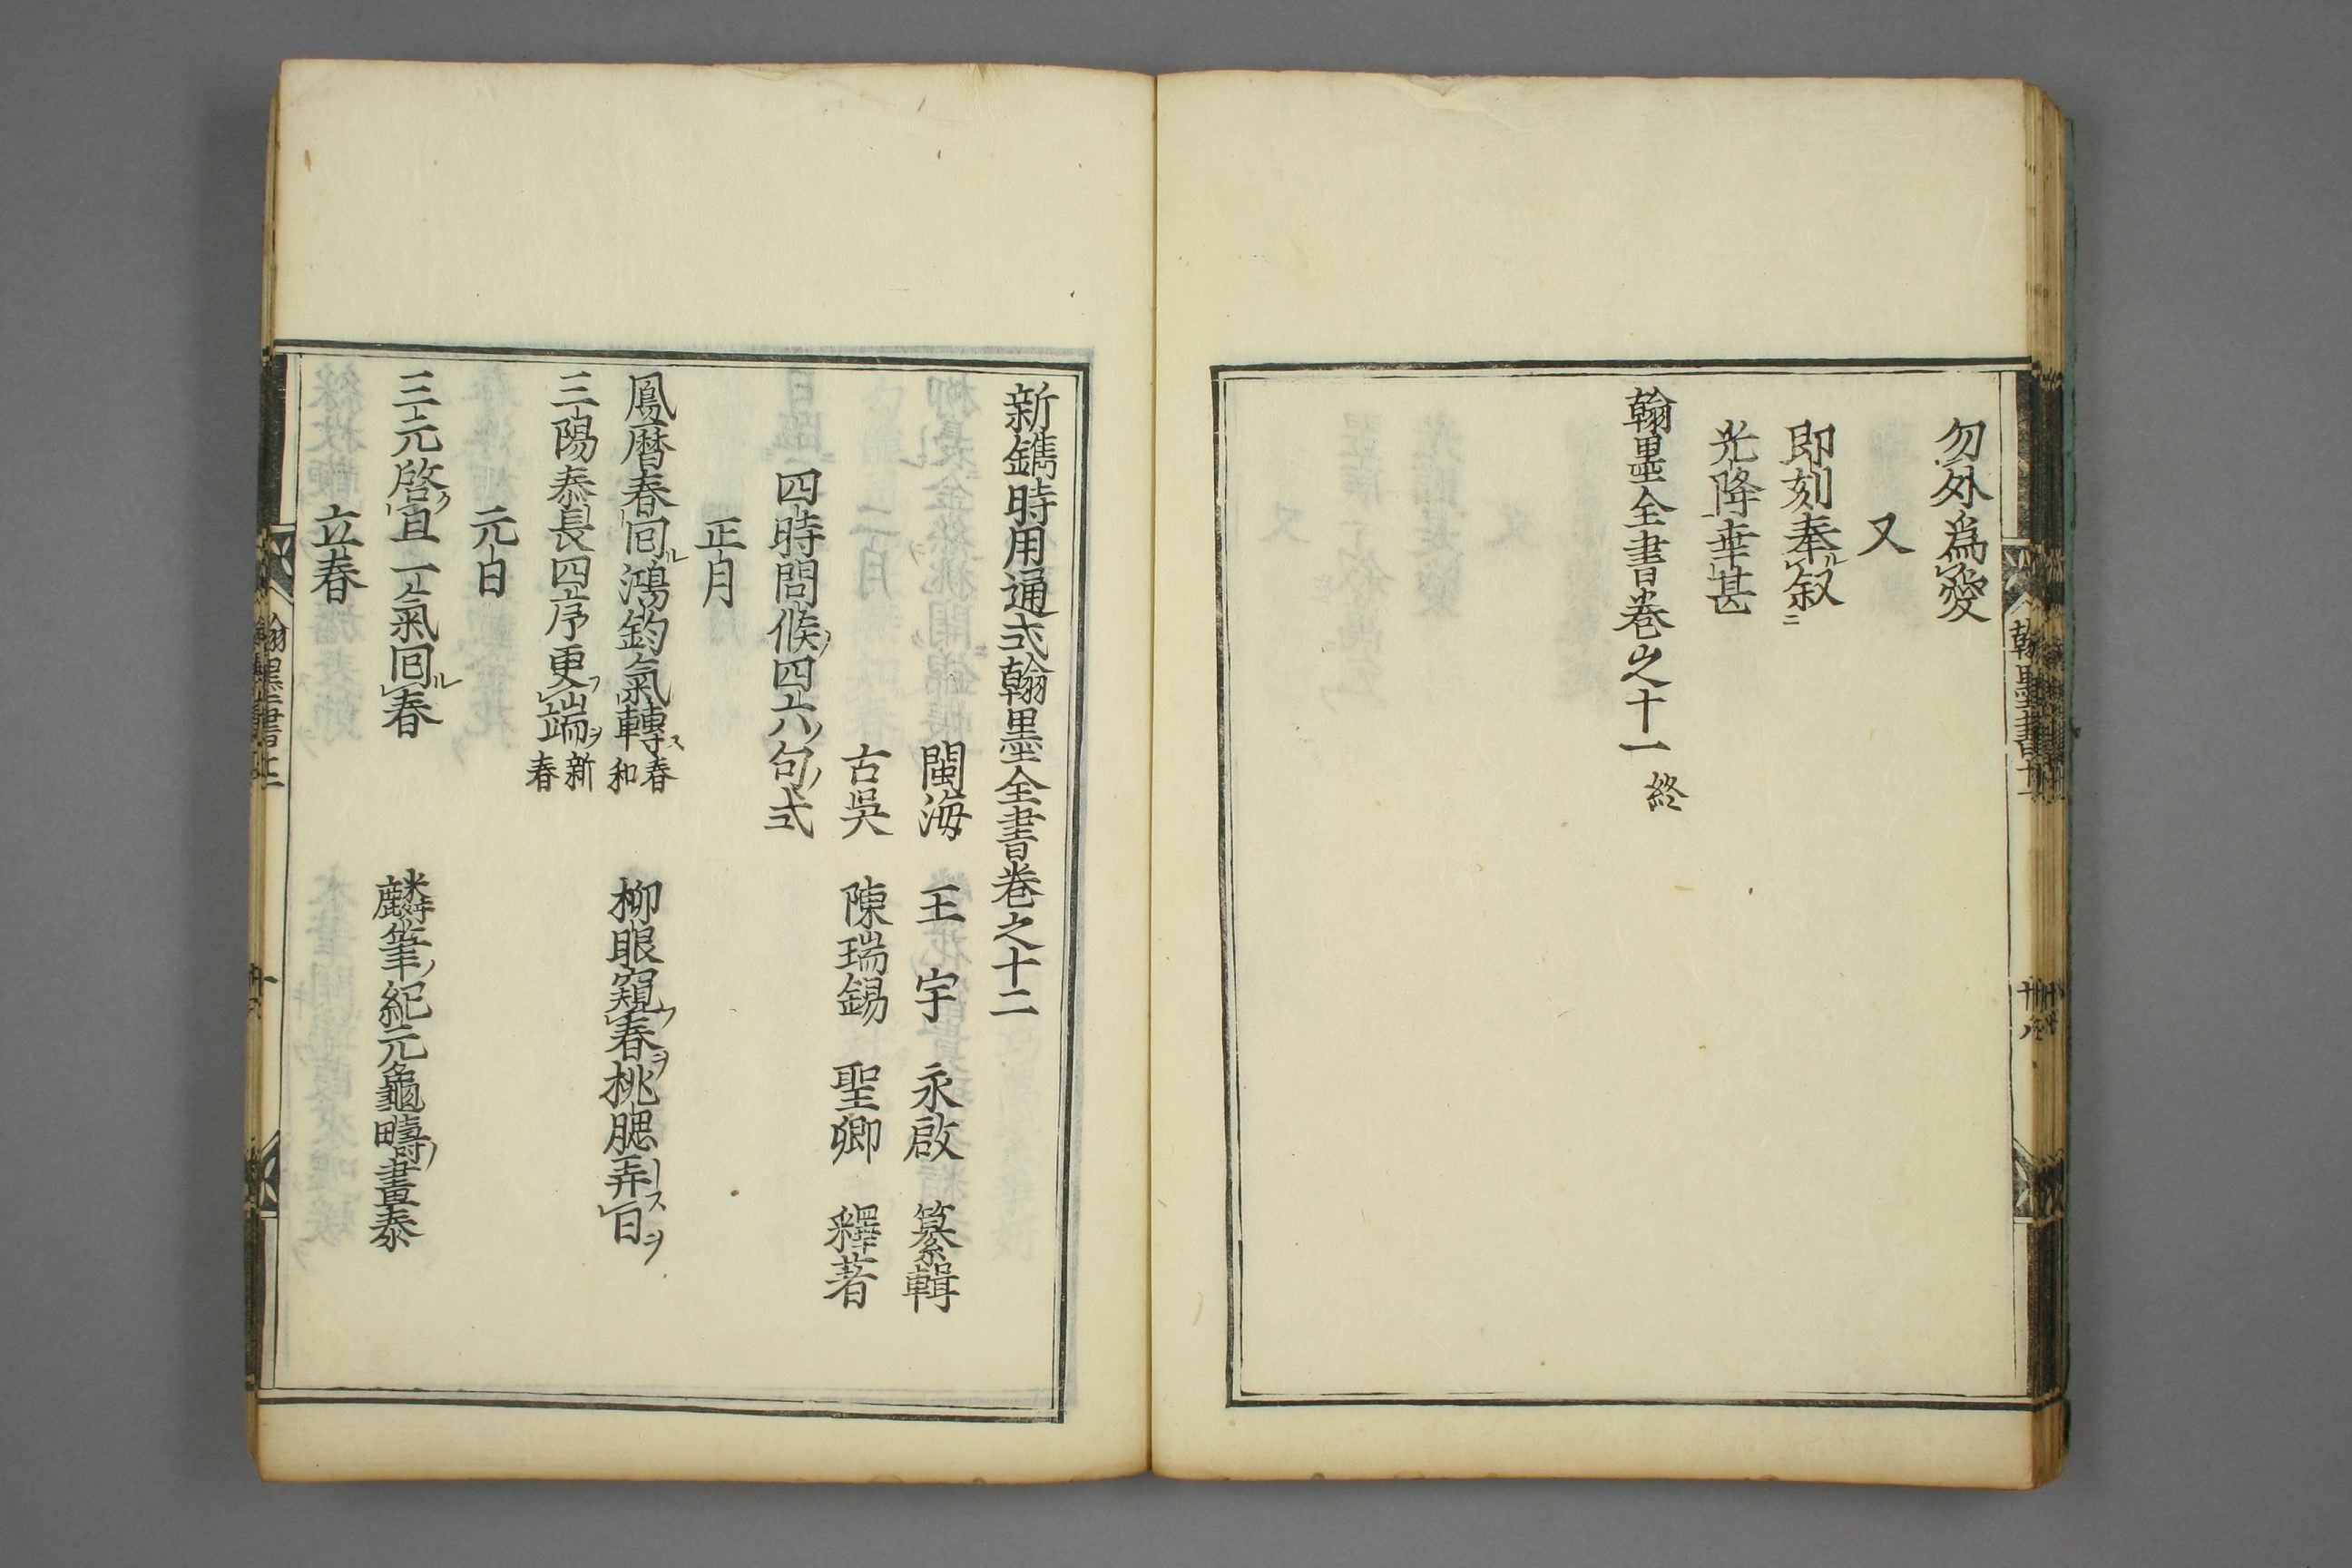 勿外爲愛
又
即刻奉叙
光降幸甚
翰墨全書卷之十一 終
新鐫時用通式翰墨全書卷之十二
閩海 王宇 永啟 纂輯
古吳 陳瑞錫 聖卿 釋著
四時問候四六句式
正月
鳳曆春囘鴻鈞氣轉春和 柳眼窺春桃腮弄日
三陽泰長四序更端新春
元日
三元啓宜一氣囘春 麟筆紀元龜疇畫泰
立春